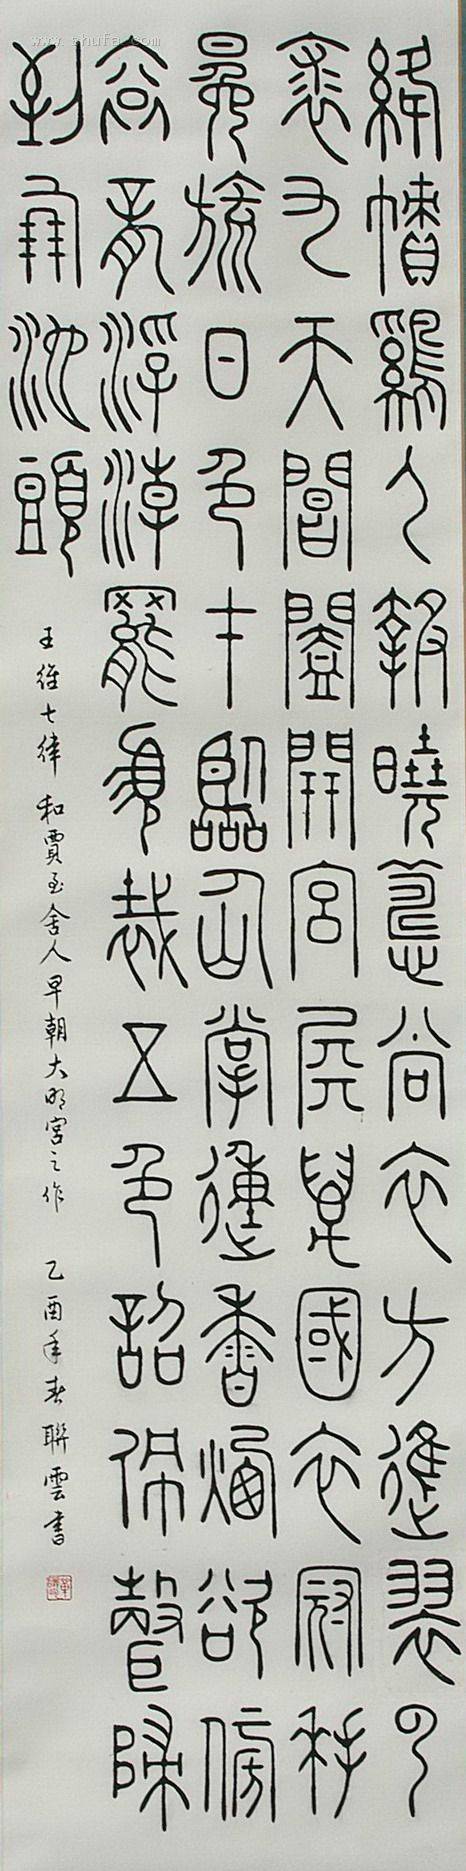 www.shufa.com
絳幘鷄人報曉籌尚衣方進翠云
裘九天閶闔開宮殿萬國衣冠拜
冕旒日色才臨仙掌動香煙欲傍
袞龍浮朝罷須裁五色詔佩聲歸
到鳳池頭
王維七律 和賈至舍人早朝大明宮之作 乙酉年春聯雲書